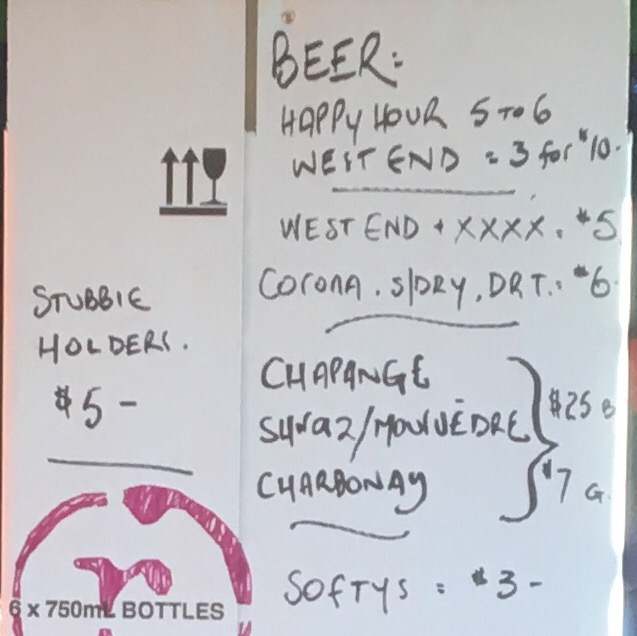 BEER:
HAPPY HOUR 5 TO 6
WEST END = 3 for $10.
WEST END + XXXX. $5
CORONA. S/DRY. DRT.: $6.
STUBBIE
HOLDERS.
$5 -
CHAPANGE
SHRAZ/MOUVEDRE
CHARDONAY
$25 B
$7 G.
SOFTYS = $3 -
6 x 750mL BOTTLES